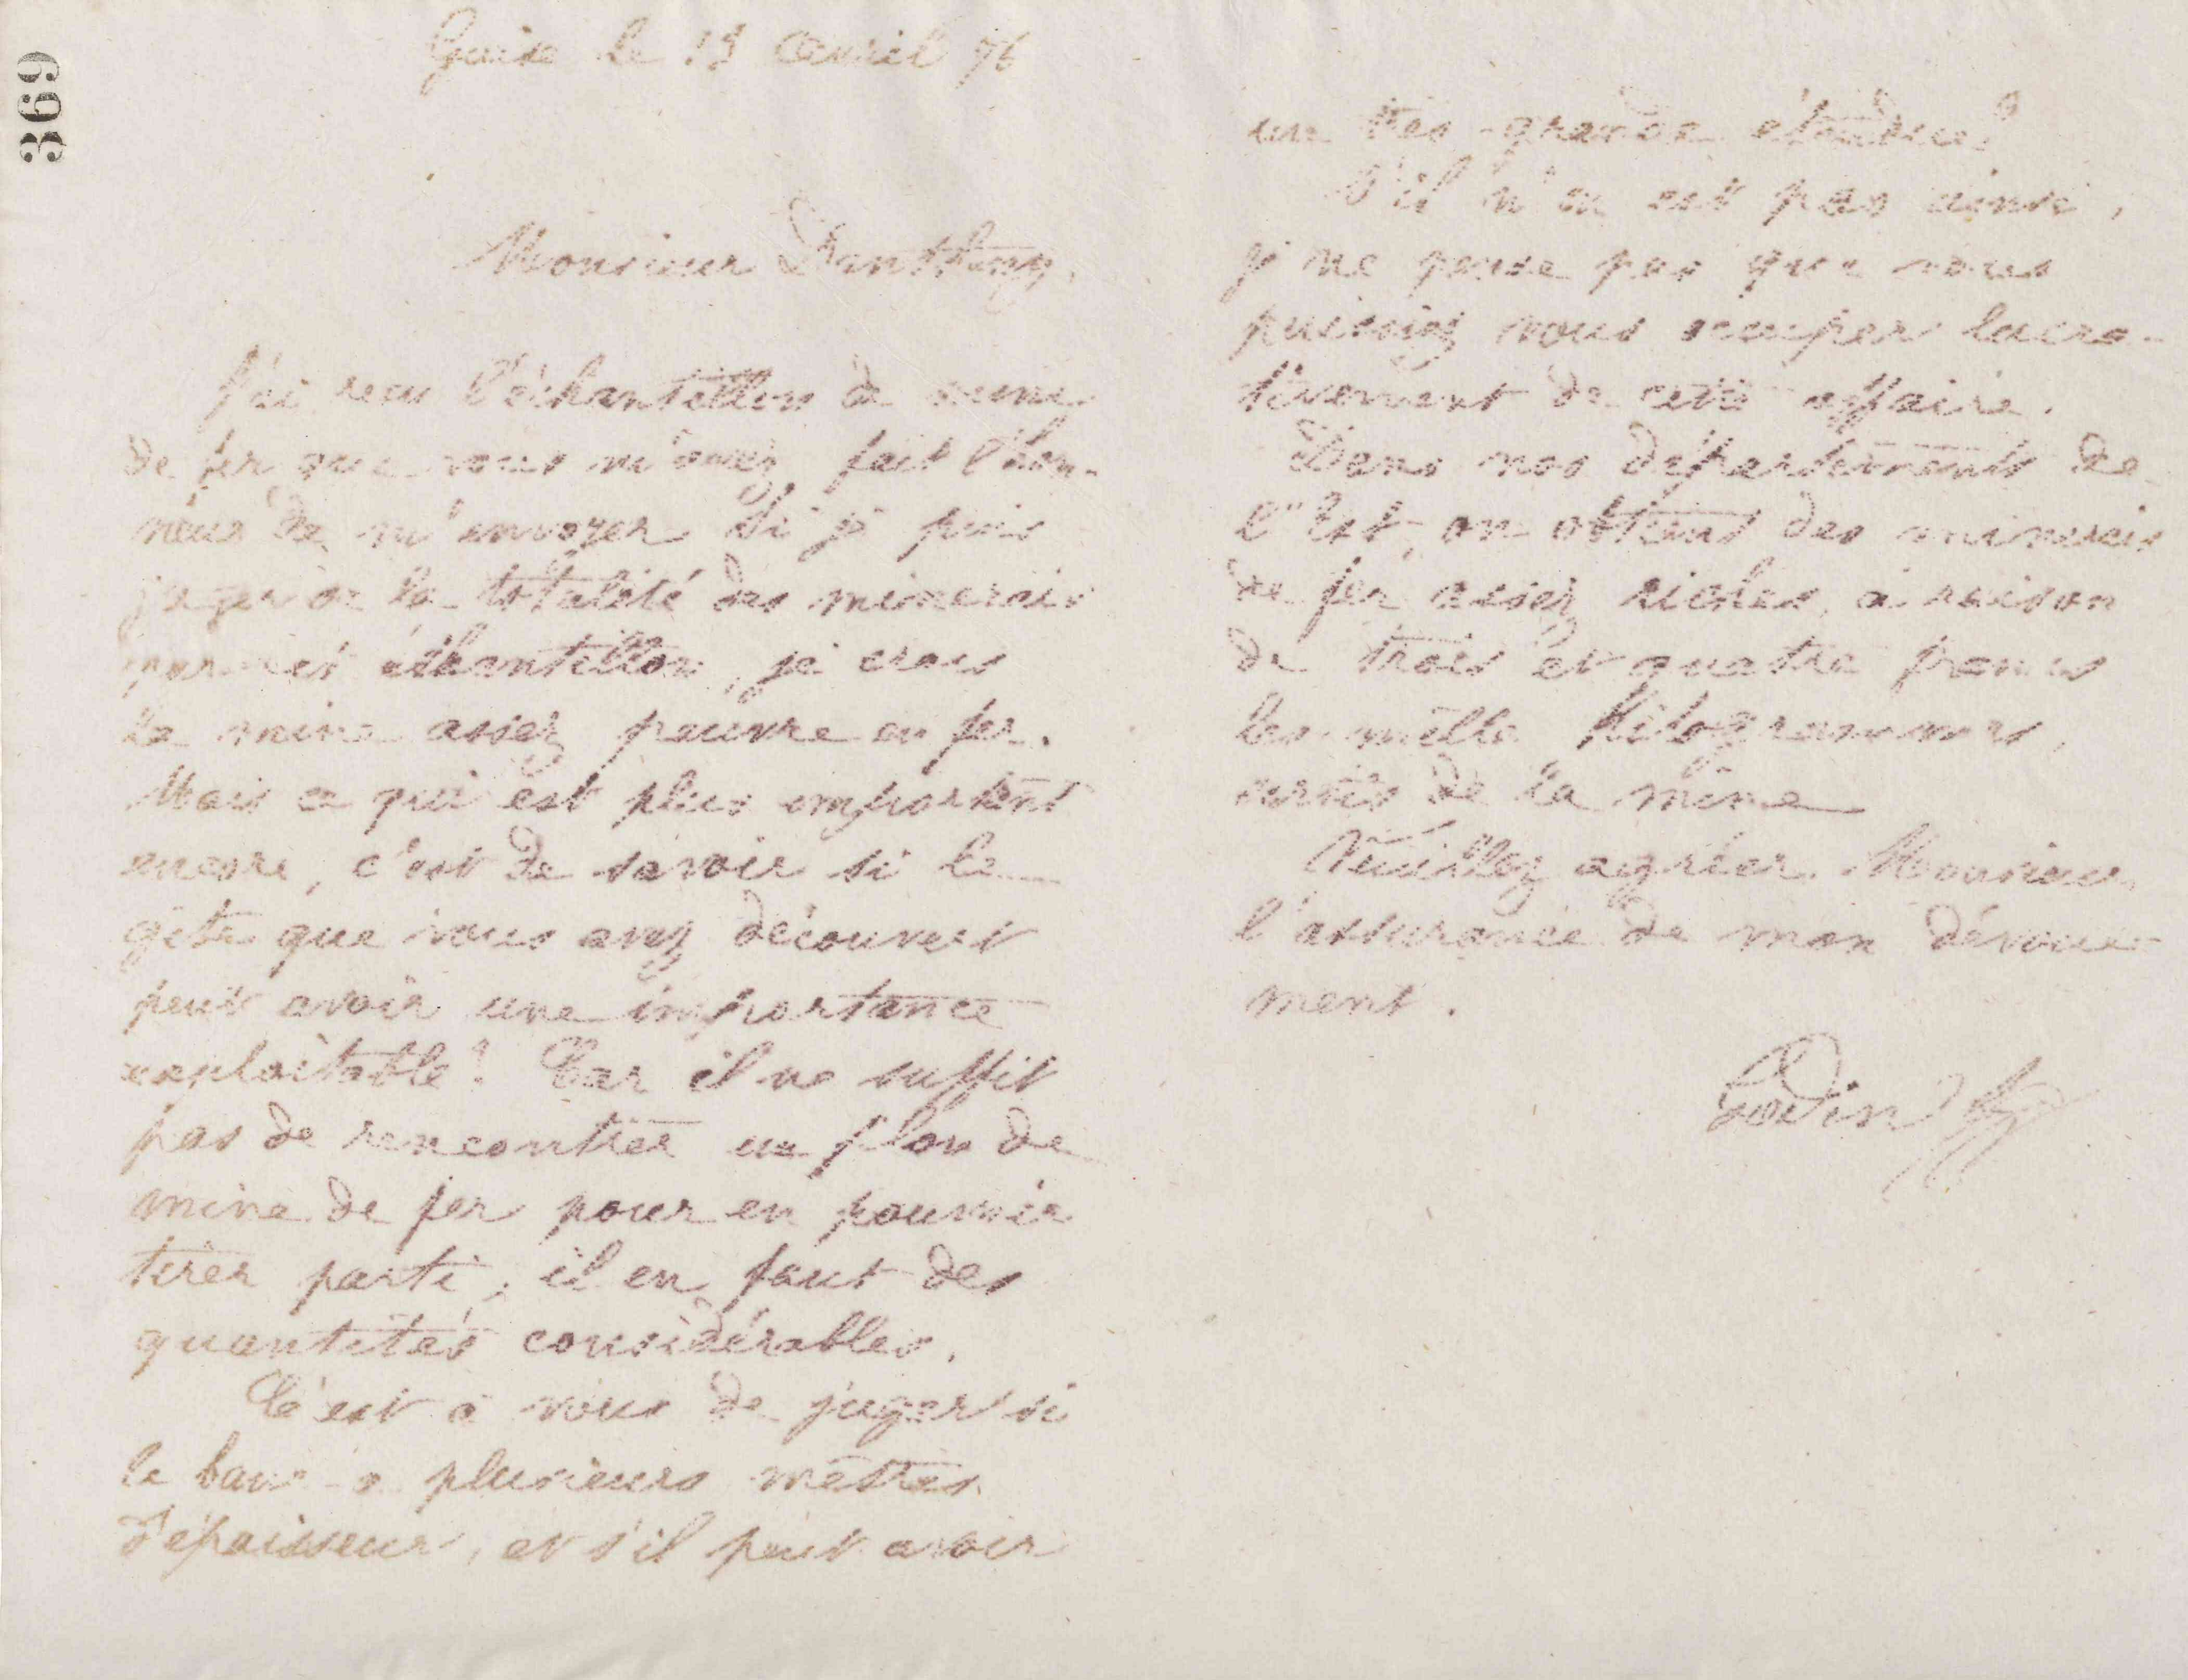 369
Guise le 19 Avril 76
Monsieur Danthony,
J'ai reçu l'échantillon de mine
de fer que vous m'avez fait l'hon-
neur de m'envoyer Si je puis
juger de la totalité des minerais
par cet échantillon, je crois
la mine assez pauvre en fer.
Mais ce qui est plus important
encore, c'est de savoir si le
gîte que vous avez découvert
peut avoir une importance
exploitable? Car il ne suffit
pas de rencontrer un filon de
mine de fer pour en pouvoir
tirer parti, il en faut des
quantités considérables.
C'est à vous de juger si
le banc a plusieurs mètres
d'épaisseur, et s'il peut avoir
une très grande étendue?
S'il n'en est pas ainsi,
je ne pense pas que vous
puissiez vous occuper lucra-
tivement de cette affaire.
Dans nos départements de
l'Est, on obtient des minerais
de fer assez riches, à raison
de trois et quatre francs
les mille Kilogrammes,
sortis de la mine
Veuillez agréer Monsieur,
l'assurance de mon dévoue-
ment.
Godin